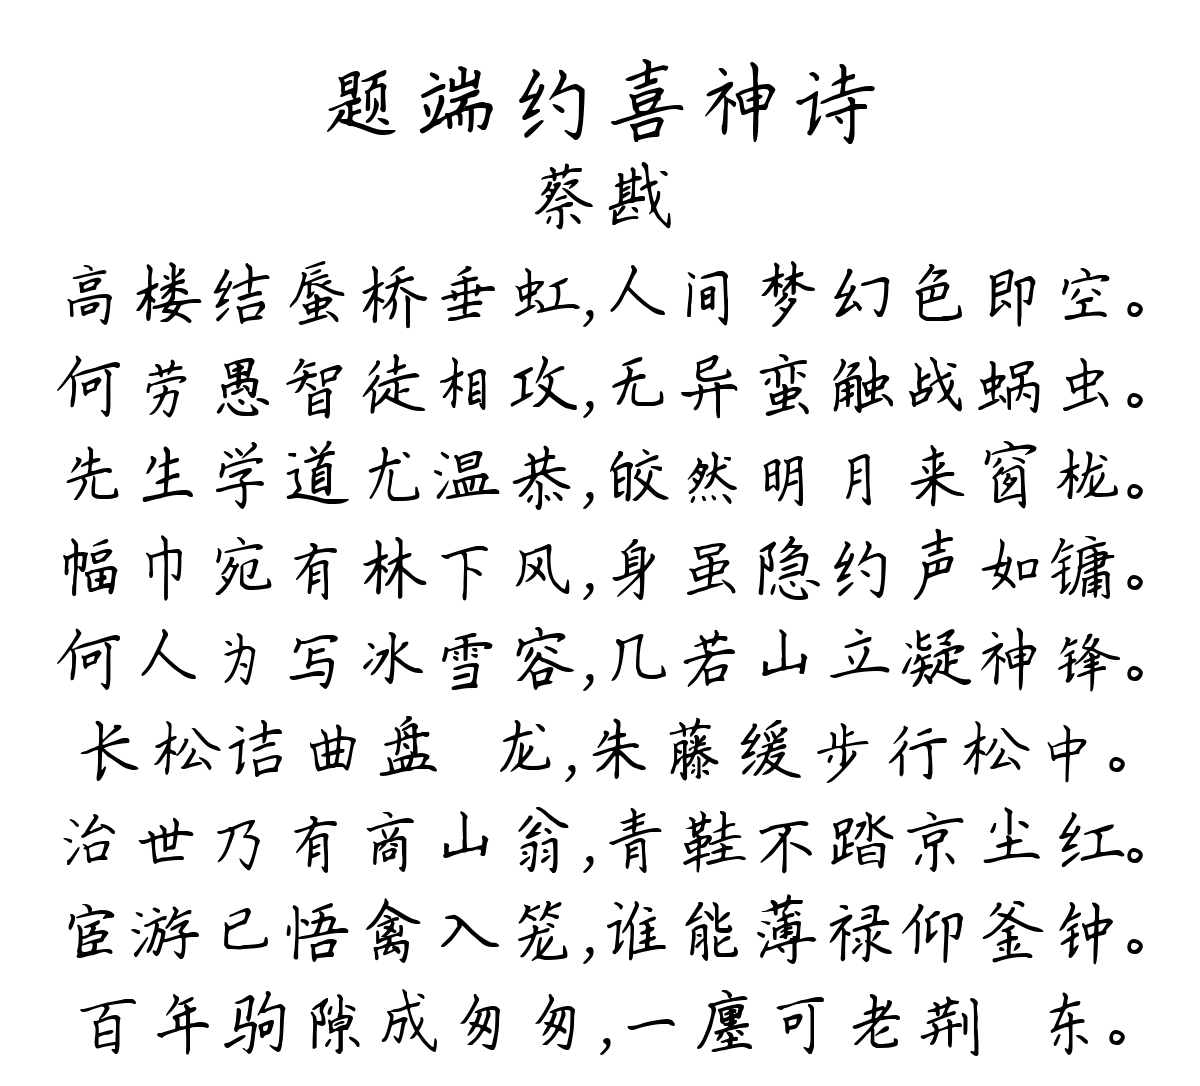 题端约喜神诗
蔡戡
高楼结蜃桥垂虹,人间梦幻色即空。
何劳愚智徒相攻,无异蛮触战蜗虫。
先生学道尤温恭,皎然明月来窗栊。
幅巾宛有林下风,身虽隐约声如镛。
何人为写冰雪容,几若山立凝神锋。
长松诘曲盘 龙,朱藤缓步行松中。
治世乃有商山翁,青鞋不踏京尘红。
宦游已悟禽入笼,谁能薄禄仰釜钟。
百年驹隙成匆匆,一廛可老荆 东。